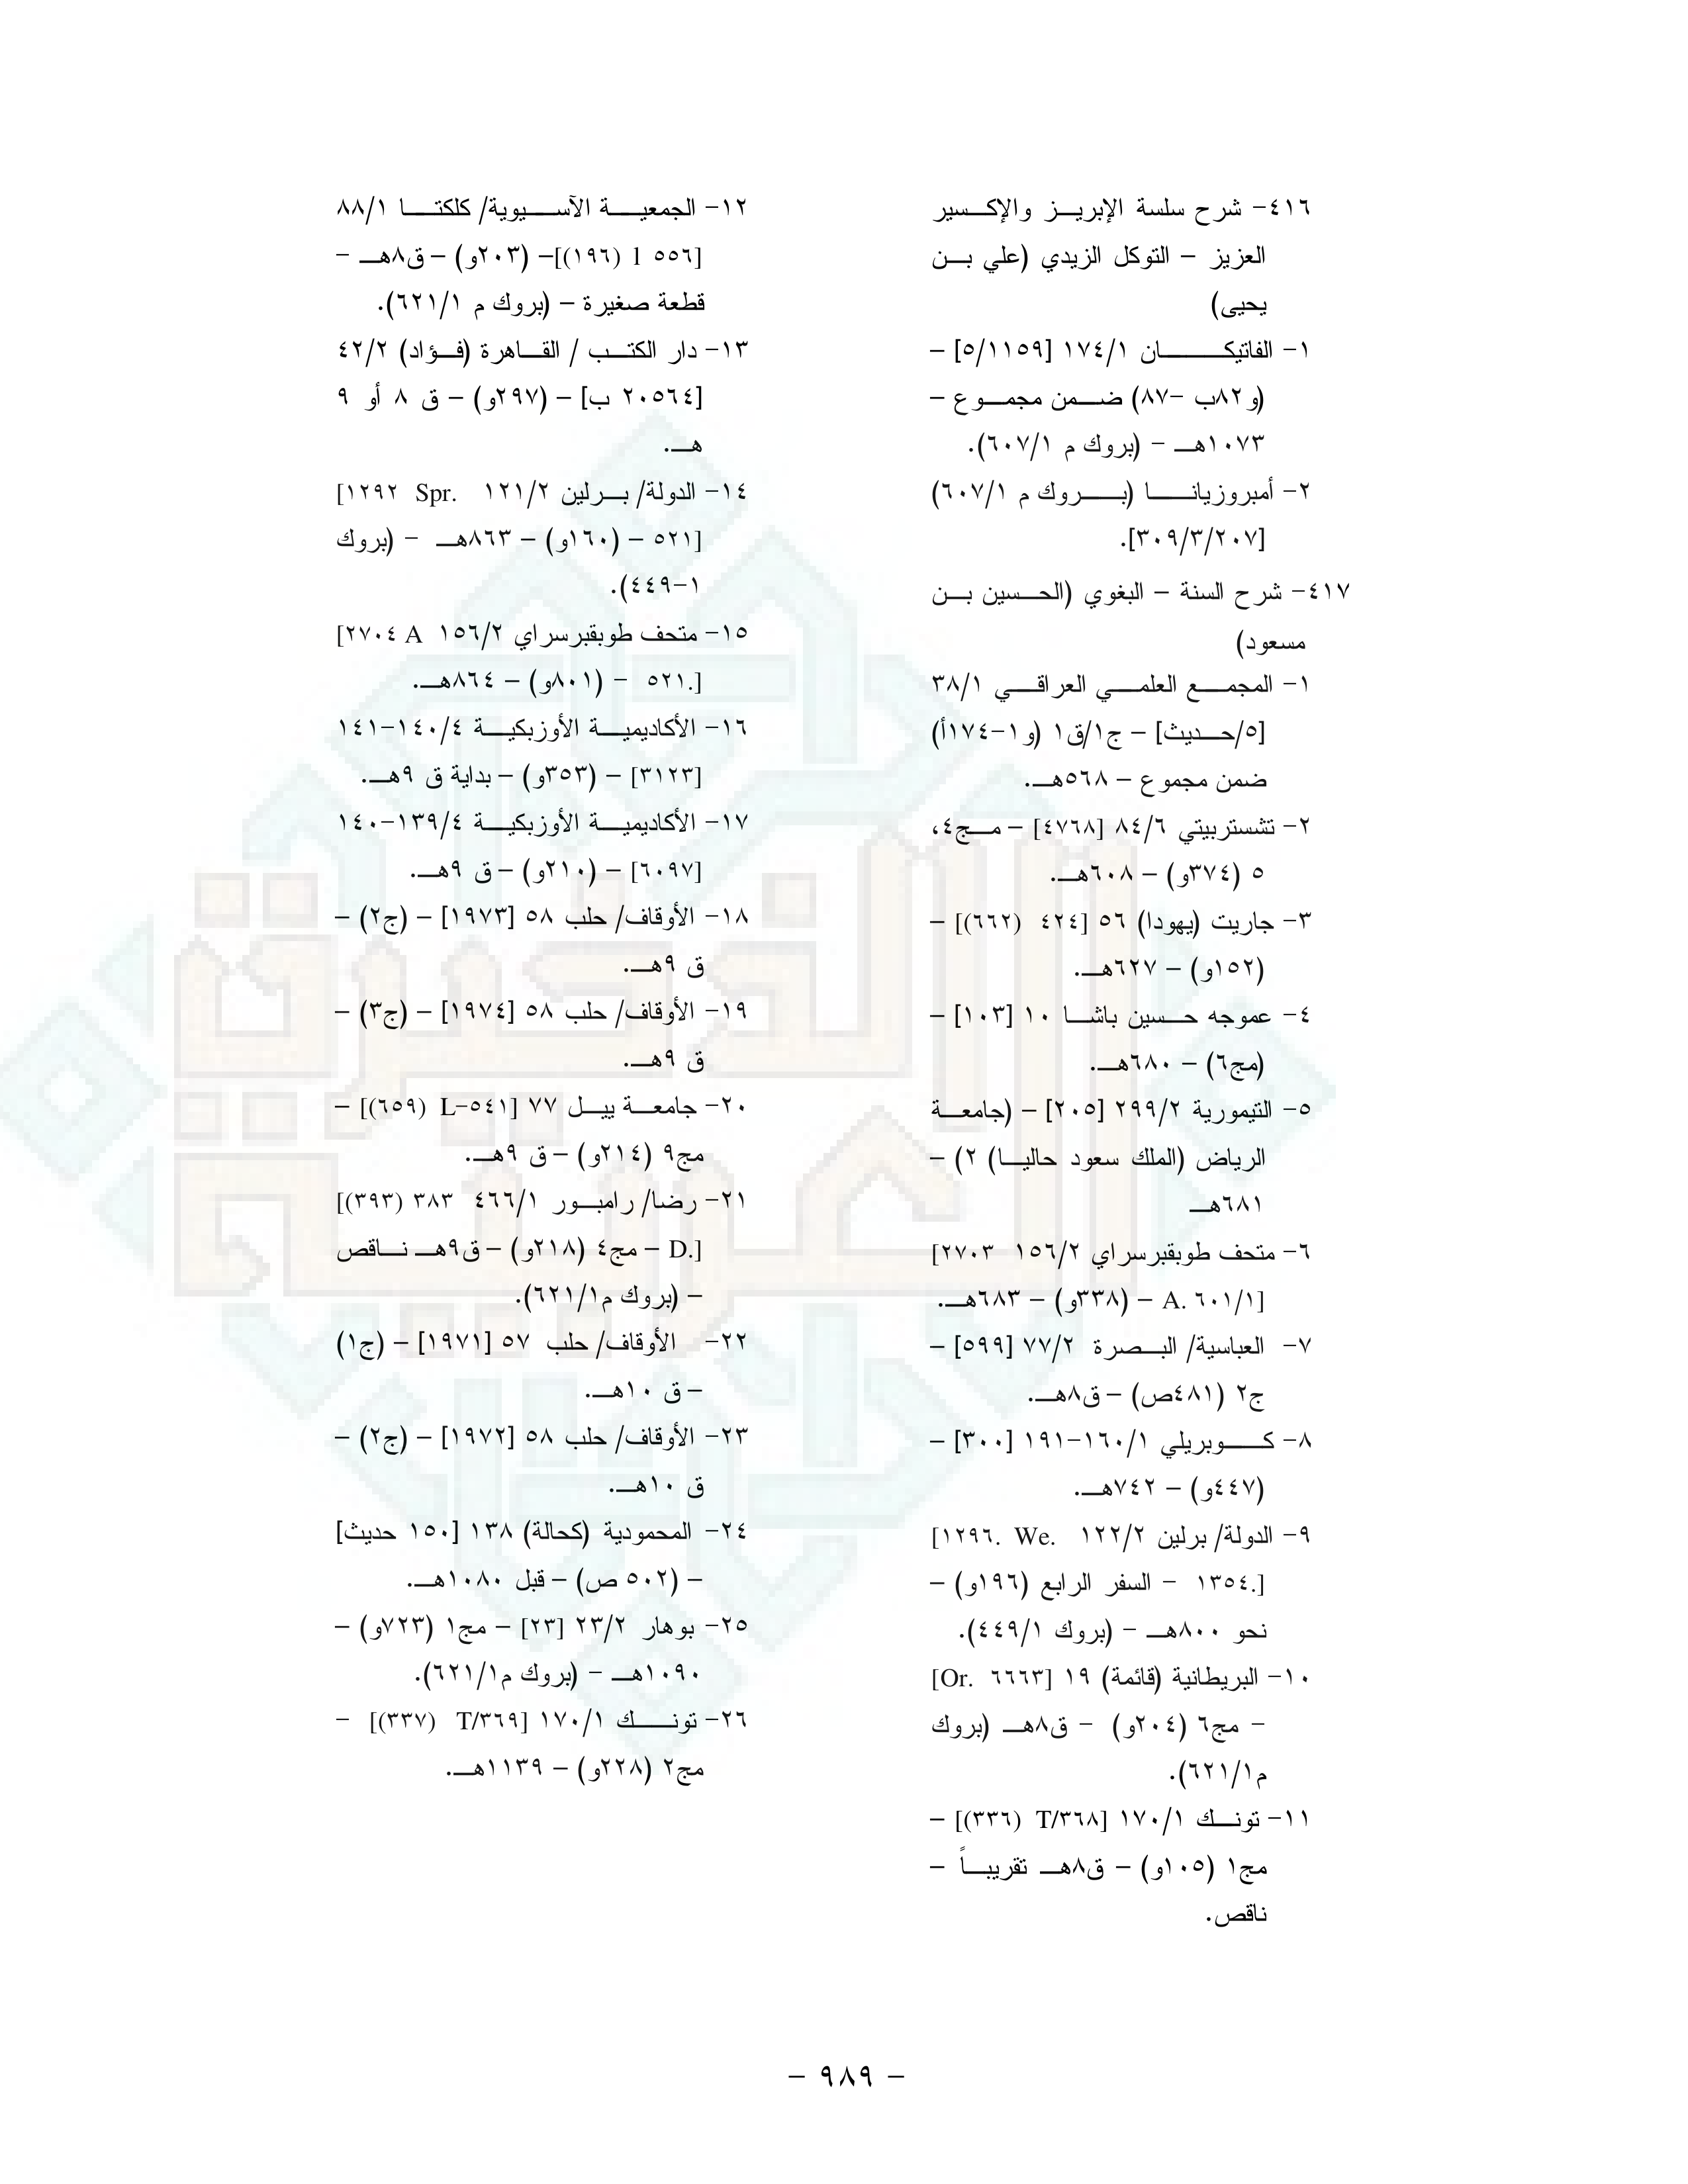 ٤١٦- شرح سلسة الإبريز والإكسير
العزيز – التوكل الزيدي (علي بن
يحيى)
١- الفاتيكان ١٧٤/١ [٥/١١٥٩] –
(و٨٢ب -٨٧) ضمن مجموع –
١٠٧٣هـ - (بروك م ٦٠٧/١).
٢- أمبروزيانا (بروك م ٦٠٧/١)
[٣٠٩/٣/٢٠٧].
٤١٧- شرح السنة – البغوي (الحسين بن
مسعود)
١- المجمع العلمي العراقي ٣٨/١
[٥/حديث] – ج١/ق١ (و١-١٧٤أ)
ضمن مجموع – ٥٦٨هـ.
٢- تشستربيتي ٨٤/٦ [٤٧٦٨] – مج٤،
٥ (٣٧٤و) – ٦٠٨هـ.
٣- جاريت (يهودا) ٥٦ [٤٢٤ (٦٦٢)] –
(١٥٢و) – ٦٢٧هـ.
٤- عموجه حسين باشا ١٠ [١٠٣] –
(مج٦) – ٦٨٠هـ.
٥- التيمورية ٢٩٩/٢ [٢٠٥] – (جامعة
الرياض (الملك سعود حاليا) ٢) –
٦٨١هـ
٦- متحف طوبقبرسراي ١٥٦/٢ ٢٧٠٣]
[A. ٦٠١/١ – (٣٣٨و) – ٦٨٣هـ.
٧- العباسية/ البصرة ٧٧/٢ [٥٩٩] –
ج٢ (٤٨١ص) – ق٨هـ.
٨- كوبريلي ١٦٠/١-١٩١ [٣٠٠] –
(٤٤٧و) – ٧٤٢هـ.
٩- الدولة/ برلين ١٢٢/٢ We. ١٢٩٦.]
[.١٣٥٤ - السفر الرابع (١٩٦و) –
نحو ٨٠٠هـ - (بروك ٤٤٩/١).
١٠- البريطانية (قائمة) ١٩ [Or. ٦٦٦٣]
- مج٦ (٢٠٤و) - ق٨هـ (بروك
م٦٢١/١).
١١- تونك ١٧٠/١ [T/٣٦٨ (٣٣٦)] –
مج١ (١٠٥و) – ق٨هـ تقريباً –
ناقص.
١٢- الجمعية الآسيوية/ كلكتا ٨٨/١
[٥٥٦ l (١٩٦)]– (٢٠٣و) – ق٨هـ -
قطعة صغيرة – (بروك م ٦٢١/١).
١٣- دار الكتب / القاهرة (فؤاد) ٤٢/٢
[٢٠٥٦٤ ب] – (٢٩٧و) – ق ٨ أو ٩
هـ.
١٤- الدولة/ برلين ١٢١/٢ Spr. ١٢٩٢]
[٥٢١ – (١٦٠و) – ٨٦٣هـ - (بروك
١-٤٤٩).
١٥- متحف طوبقبرسراي ١٥٦/٢ A ٢٧٠٤]
[.٥٢١ - (٨٠١و) – ٨٦٤هـ.
١٦- الأكاديمية الأوزبكية ١٤٠/٤-١٤١
[٣١٢٣] – (٣٥٣و) – بداية ق ٩هـ.
١٧- الأكاديمية الأوزبكية ١٣٩/٤-١٤٠
[٦٠٩٧] – (٢١٠و) – ق ٩هـ.
١٨- الأوقاف/ حلب ٥٨ [١٩٧٣] – (ج٢) –
ق ٩هـ.
١٩- الأوقاف/ حلب ٥٨ [١٩٧٤] – (ج٣) –
ق ٩هـ.
٢٠- جامعة ييل ٧٧ [L-٥٤١ (٦٥٩)] –
مج٩ (٢١٤و) – ق ٩هـ.
٢١- رضا/ رامبور ٤٦٦/١ ٣٨٣ (٣٩٣)]
[D. – مج٤ (٢١٨و) – ق٩هـ ناقص
– (بروك م٦٢١/١).
٢٢- الأوقاف/ حلب ٥٧ [١٩٧١] – (ج١)
– ق ١٠هـ.
٢٣- الأوقاف/ حلب ٥٨ [١٩٧٢] – (ج٢) –
ق ١٠هـ.
٢٤- المحمودية (كحالة) ١٣٨ [١٥٠ حديث]
– (٥٠٢ ص) – قبل ١٠٨٠هـ.
٢٥- بوهار ٢٣/٢ [٢٣] – مج١ (٧٢٣و) –
١٠٩٠هـ - (بروك م٦٢١/١).
٢٦- تونك ١٧٠/١ [T/٣٦٩ (٣٣٧)] -
مج٢ (٢٢٨و) – ١١٣٩هـ.
- ٩٨٩ -